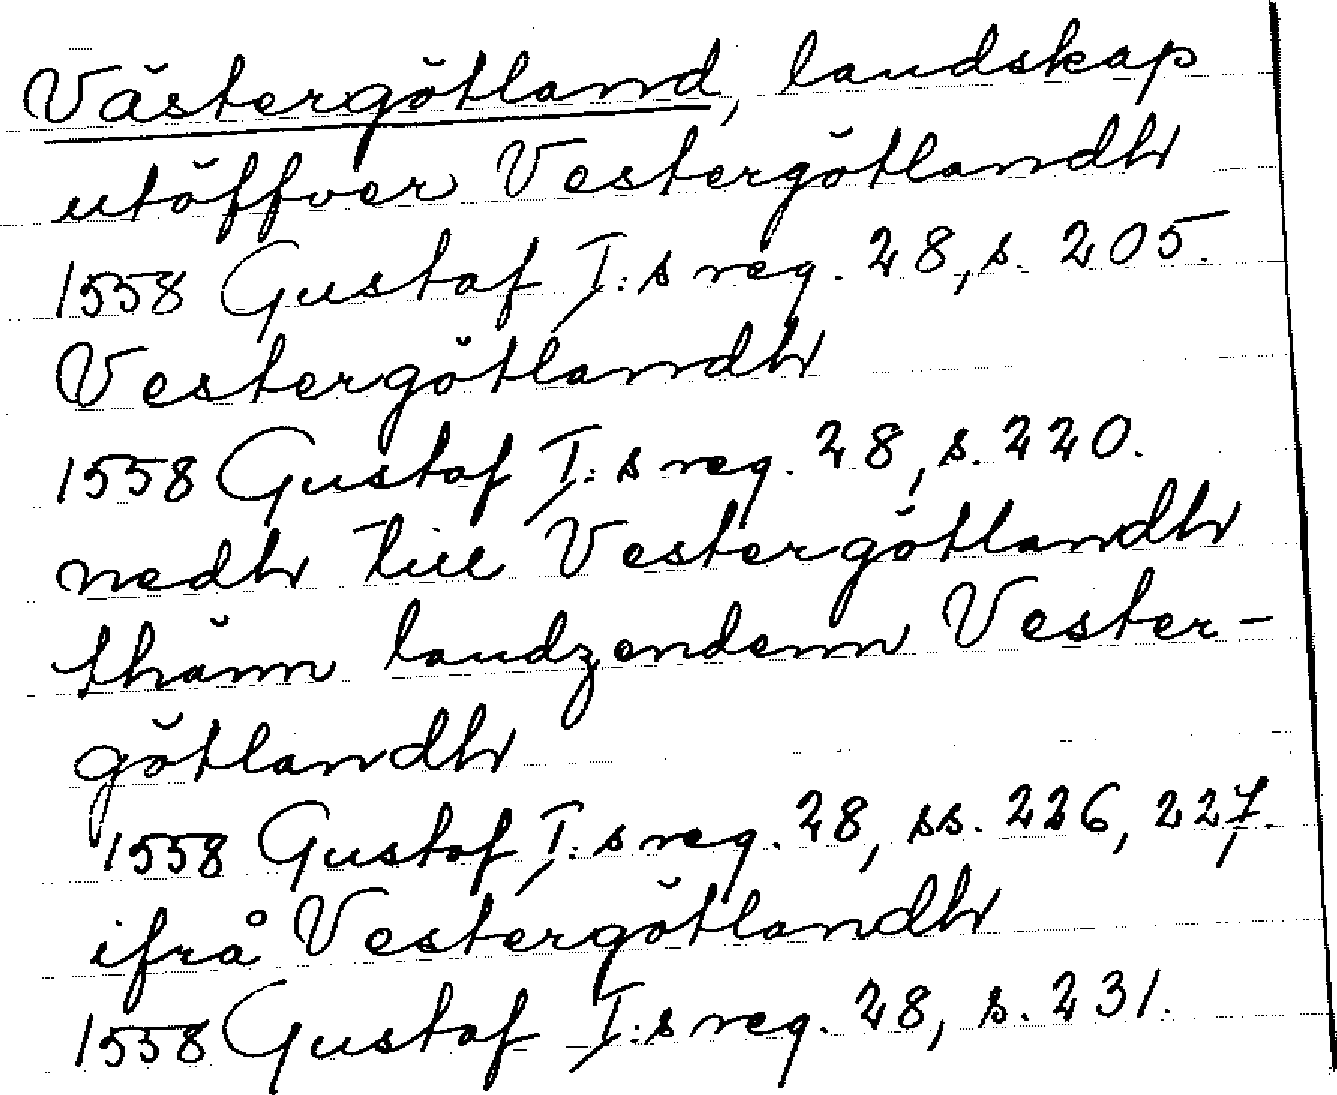 Västergötland, landskap
utöffver Vestergötlandh
1558 Gustaf I:s reg. 28, s. 205.
Vestergötlandh
1558 Gustaf I:s reg. 28, s. 220.
nedh till Vestergötlandh
thänn landzendenn Vester-
götlandh
1558 Gustaf I:s reg. 28, ss. 226, 227.
ifrå Vestergötlandh
1558 Gustaf I:s reg. 28, s. 231.